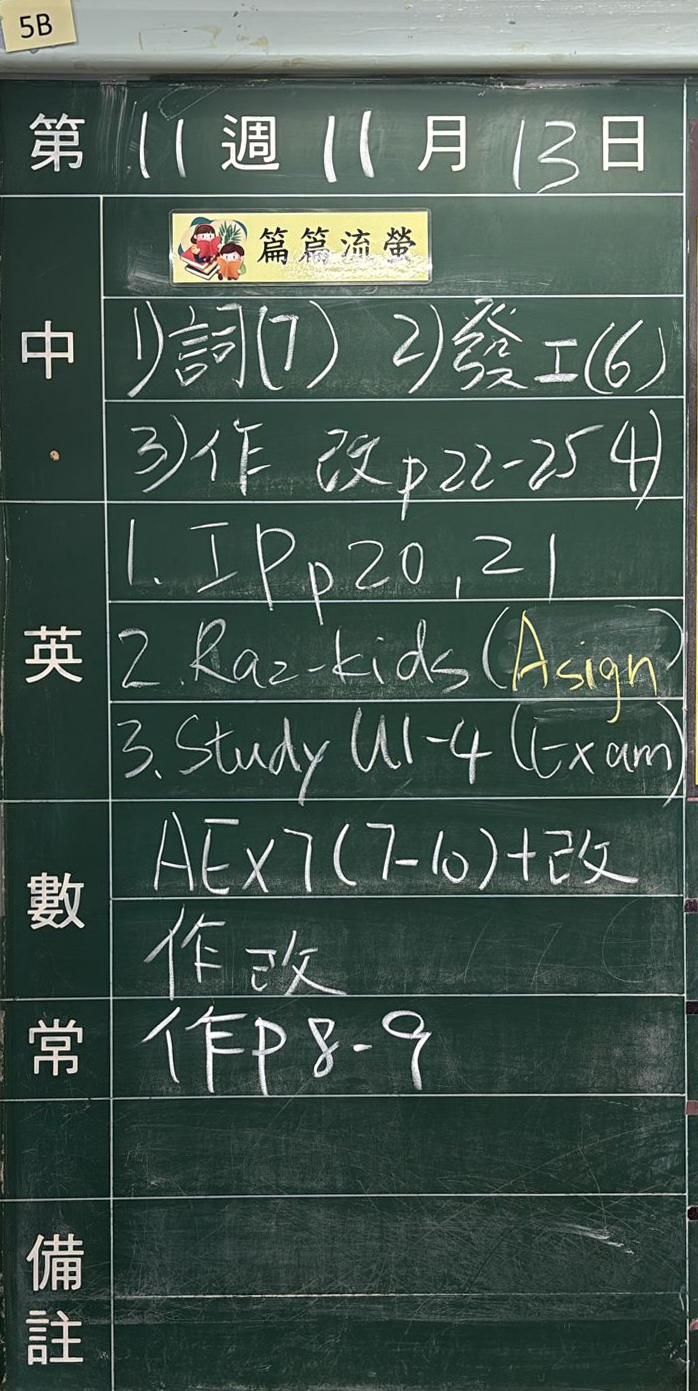 5B
第 11 週 11 月 13 日
篇篇流螢
中
1)詞(7) 2)發工(6)
3)作 改p22-25 4)
英
1. IP p20,21
2. Raz-kids (Asign)
3. Study U1-4 (Exam)
數
AEx7(7-10)+改
作改
常
作P8-9
備註